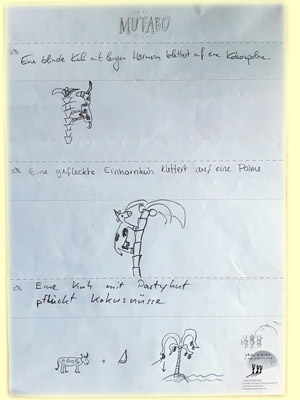 MUTABO
Eine blinde Kuh mit langen Hörnern klettert auf eine Kokospalme.
Eine gefleckte Einhornkuh klettert auf eine Palme
Eine Kuh mit Partyhut
pflückt Kokosnüsse
+